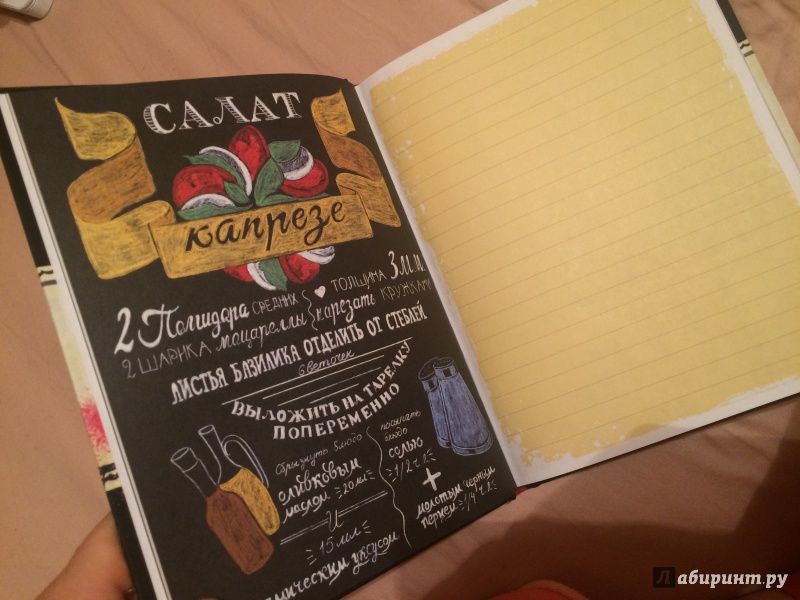 САЛАТ
капрезе
2 Помидора средних
2 ШАРИКА моцареллы
ТОЛЩИНА 3 м.м.
нарезать КРУЖКАМИ
ЛИСТЬЯ БАЗИЛИКА ОТДЕЛИТЬ ОТ СТЕБЛЕЙ
ВЫЛОЖИТЬ НА ТАРЕЛКУ
ПОПЕРЕМЕННО
сбрызнуть блюдо
оливковым
маслом 20 мл
И
15 мл
уксусом
посыпать
блюдо
солью
1/2 ч.л
+
молотым черным
перцем 1/4 ч.л
Лабиринт.ру